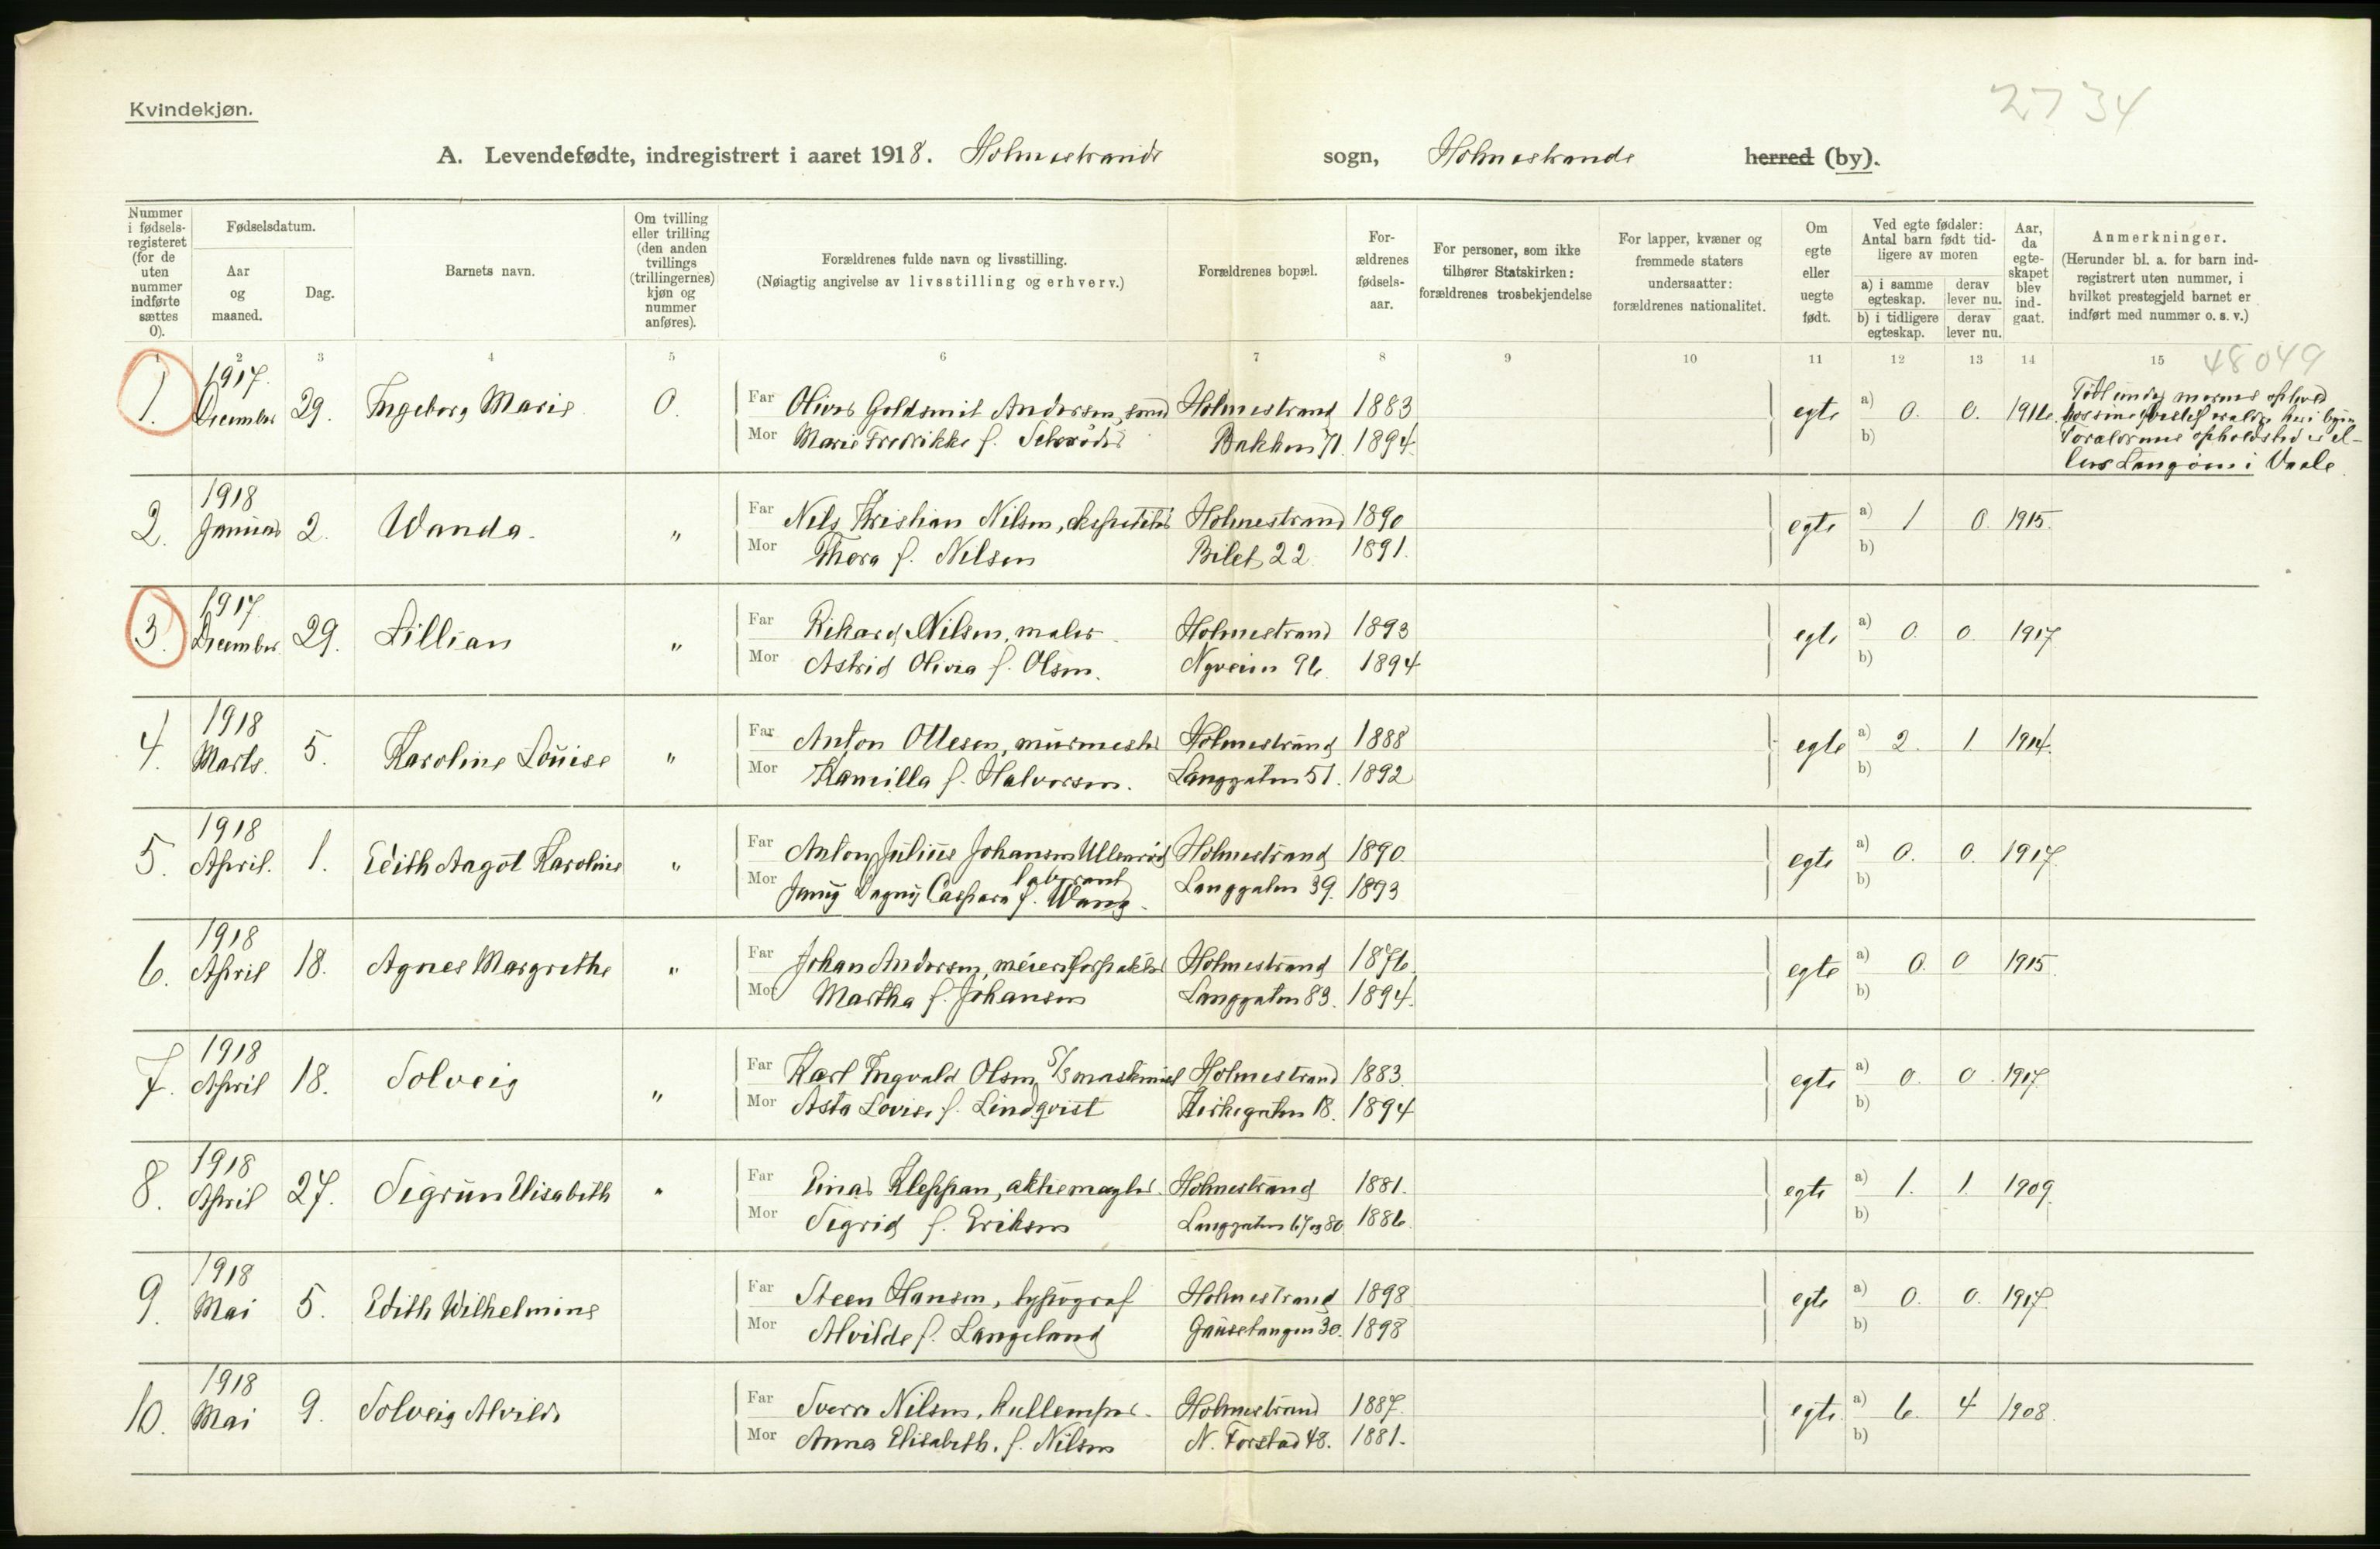 Kvindekjøn.
2734
A. Levendefødte, indregistrert i aaret 1918. Holmestrands sogn, Holmestrands herred (by).
Nummer i fødsels-registeret (for de uten nummer indførte sættes 0).
Fødselsdatum.
Aar og maaned.
Dag.
Barnets navn.
Om tvilling eller trilling (den anden tvillings (trillingernes) kjøn og nummer anføres).
Forældrenes fulde navn og livsstilling.
(Nøiagtig angivelse av livsstilling og erhverv.)
Forældrenes bopæl.
For-ældrenes fødsels-aar.
For personer, som ikke tilhører Statskirken: forældrenes trosbekjendelse
For lapper, kvæner og fremmede staters undersaatter: forældrenes nationalitet.
Om egte eller uegte født.
Ved egte fødsler: Antal barn født tid-ligere av moren
a) i samme egteskap. derav lever nu.
b) i tidligere egteskap. derav lever nu.
Aar, da egte-skapet blev ind-gaat.
Anmerkninger.
(Herunder bl. a. for barn ind-registrert uten nummer, i hvilket prestegjeld barnet er indført med nummer o. s. v.)
1 2 3 4 5 6 7 8 9 10 11 12 13 14 15 48049
1. 1917. December 29. Ingeborg Marie 0. Far Oliver Goldsmit Andersen, smed Holmestrand 1883 egte a) 0. 0. 1916.
Mor Marie Fredrikke f. Schrøder Bakken 71. 1894. b)
Født under morens ophold
hos sine forældre her i byen
Forældrenes opholdsted er el-
lers Langøen i Vaale
2. 1918 Januar 2. Wanda. " Far Nils Kristian Nilsen, ekspeditør Holmestrand 1890 egte a) 1 0. 1915.
Mor Thora f. Nilsen Bilet 22. 1891. b)
3. 1917. December 29. Lillian " Far Rikard Nilsen, maler. Holmestrand 1893 egte a) 0. 0. 1917.
Mor Astrid Olivia f. Olsen. Nyveien 96. 1894 b)
4. 1918 Marts. 5. Karoline Louise " Far Anton Ottesen, murmester Holmestrand 1888 egte a) 2. 1 1914.
Mor Kamilla f. Halvorsen. Langgaten 51. 1892 b)
5. 1918 April. 1. Edith Aagot Karoline " Far Anton Julius Johansen Ullenrød Holmestrand 1890. egte a) 0. 0. 1917.
laborant
Mor Jenny Dagny Caspara f. Wang. Langgaten 39. 1893 b)
6. 1918 April 18. Agnes Margrethe " Far Johan Andersen, meieriforpakter Holmestrand 1876. egte a) 0. 0 1915.
Mor Martha f. Johansen Langgaten 83. 1894. b)
7. 1918 April 18. Solveig " Far Karl Ingvald Olsen, S/S maskinist Holmestrand 1883. egte a) 0. 0. 1917.
Mor Asta Lovise f. Lindqvist Kirkegaten 18. 1894 b)
8. 1918 April 27. Sigrun Elisabeth " Far Einar Kleppan, aktiemægler. Holmestrand 1881. egte a) 1. 1. 1909.
Mor Sigrid f. Eriksen Langgaten 67 og 80. 1886. b)
9. 1918 Mai 5. Edith Wilhelmine Far Steen Hansen, typograf Holmestrand 1898 egte a) 0. 0. 1917.
Mor Alvilde f. Langeland Gausetangen 30. 1898 b)
10. 1918 Mai 9. Solveig Alvilde Far Sverre Nilsen, kullemper. Holmestrand 1887. egte a) 6. 4 1908.
Mor Anna Elisabeth. f. Nilsen N. Forstad 48. 1881. b)